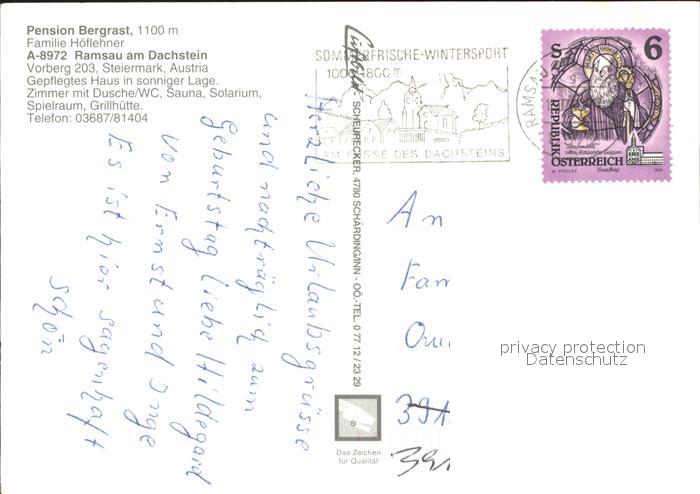 Pension Bergrast, 1100 m
Familie Höflehner
A-8972 Ramsau am Dachstein
Vorberg 203, Steiermark, Austria
Gepflegtes Haus in sonniger Lage.
Zimmer mit Dusche/WC, Sauna, Solarium,
Spielraum, Grillhütte.
Telefon: 03687/81404
Herzliche Urlaubsgrüsse
und nachträglich zum
Geburtstag liebe Hildegard
von Ernst und Inge
Es ist hier sagenhaft
schön
SCHEURECKER, 4780 SCHÄRDING/INN - OÖ.-TEL. 0 77 12 / 23 29
SOMMERFRISCHE-WINTERSPORT
AM FUSSE DES DACHSTEINS
RAMSAU
S 6
REPUBLIK
ÖSTERREICH
An
Fam
391
391
Das Zeichen
für Qualität
privacy protection
Datenschutz